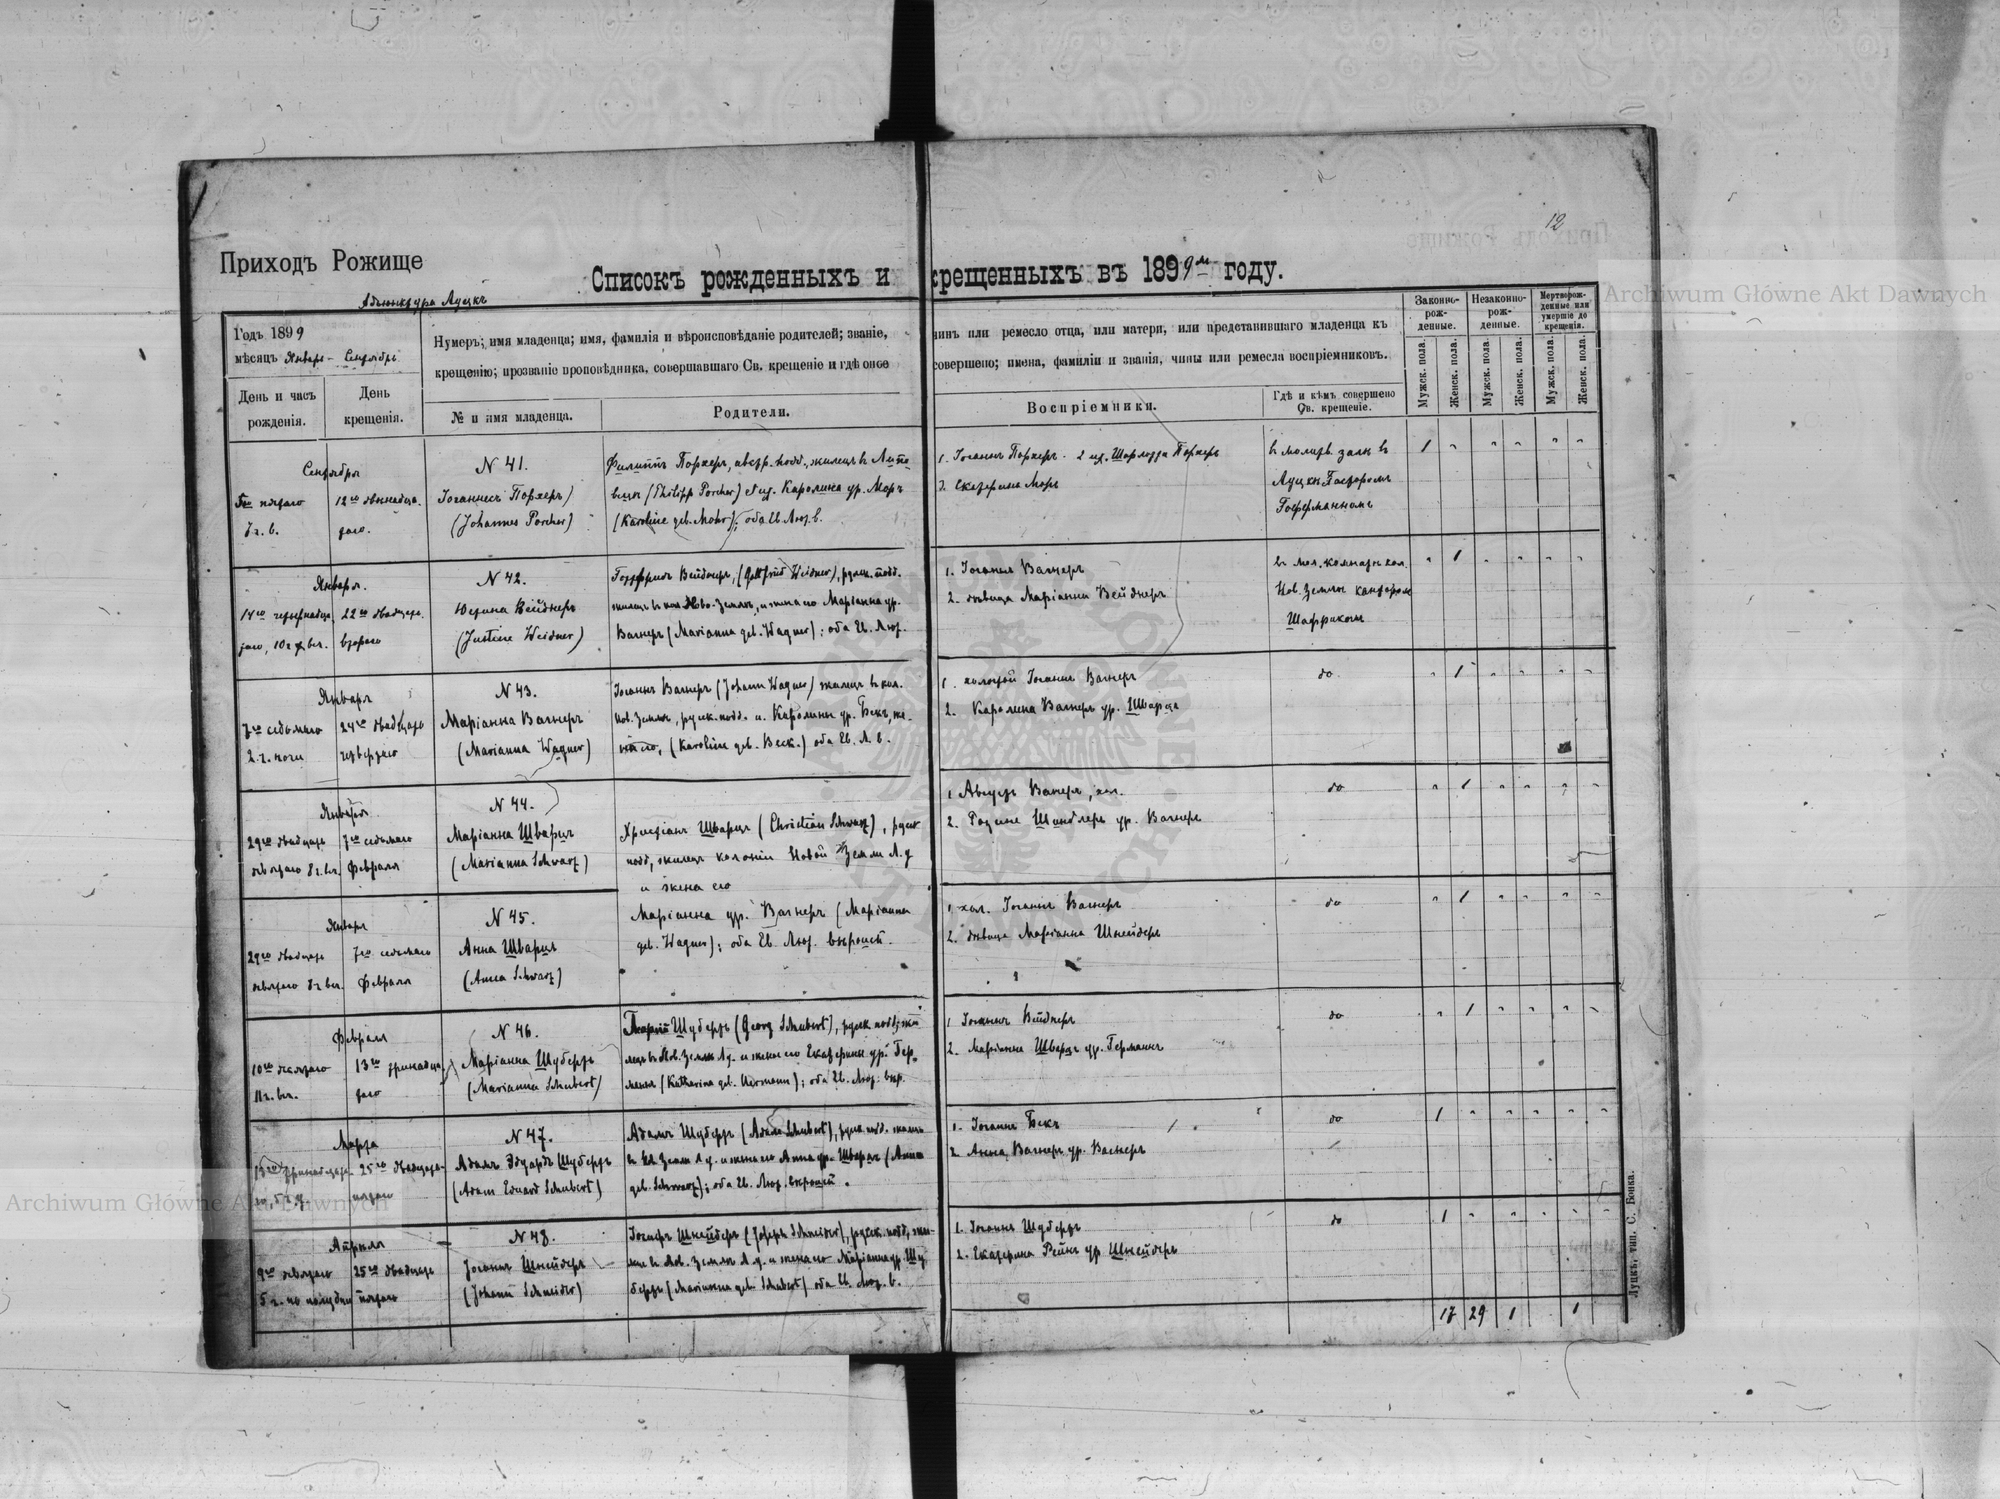 12
Приходъ Рожище
Адъюнктура Луцкъ
Списокъ рожденныхъ и крещенныхъ въ 1899м году.
Годъ 1899
мѣсяцъ Январь - Сентябрь
Нумеръ; имя младенца; имя, фамилія и вѣроисповѣданіе родителей; званіе, чинъ или ремесло отца, или матери, или представившаго младенца къ
крещенію; прозваніе проповѣдника, совершавшаго Св. крещеніе и гдѣ оное совершено; имена, фамиліи и званія, чины или ремесла воспріемниковъ.
Законно-рож-денные.
Незаконно-рож-денные.
Мертворож-денные или умершіе до крещенія.
Мужск. пола.
Женск. пола.
Мужск. пола.
Женск. пола.
Мужск. пола.
Женск. пола.
День и часъ рожденія.
День крещенія.
№ и имя младенца.
Родители.
Воспріемники.
Гдѣ и кѣмъ совершено Св. крещеніе.
Сентября
5го пятаго
7 ч. в.
12го двѣнадца-
таго.
N 41.
Іоганнесъ Порхеръ
(Johannes Porcher)
Филиппъ Порхеръ, австр. подд., жилецъ въ
(Philipp Porcher) Каролина ур. Моръ
(Karoline geb. Mohr); оба Ев. Лют. в.
1. Іоганнъ Порхеръ. 2 Шарлотта Порхеръ
3. Екатерина Моръ
въ молитв. залѣ въ
Луцкѣ Пасторомъ
Гофферманномъ
1
Января.
14го четырнадца-
таго, 10 ч. веч.
22го двадцать
второго
N 42.
Юстина Вейднеръ
(Justine Weidner)
Готтфридъ Вейднеръ, (Gottfried Weidner), русск. подд.
жилецъ въ кол. Ново-Земля, и жена его Маріанна ур.
Вагнеръ (Marianna geb. Wagner); оба Ев. Лют.
1. Іоганнъ Вагнеръ
2. дѣвица Маріанна Вейднеръ
въ мол. комнатѣ кол.
Нов. Земля канторомъ
1
Января
7го седьмаго
2 ч. ночи
24го двадцать
четвертаго
N 43.
Маріанна Вагнеръ
(Marianna Wagner)
Іоганнъ Вагнеръ (Johann Wagner) жилецъ въ кол.
Нов. Земля, русск. подд. и Каролины ур. Бекъ, же-
на его, (Karoline geb. Beck.) оба Ев. Л. в.
1. холостой Іоганнъ Вагнеръ
2. Каролина Вагнеръ ур. Шварца
до
1
Января
29го двадцать
девятаго 8 ч. веч.
7го седьмаго
Февраля
N 44.
Маріанна Шварцъ
(Marianna Schwarz)
Христіанъ Шварцъ (Christian Schwarz), русск
подд, жилецъ колоніи Новой Земли Л. у
и жена его
Маріанна ур. Вагнеръ (Marianna
geb. Wagner); оба Ев. Лют. вѣроисп.
1 Августъ Вагнеръ, кол.
2. Шиндлеръ ур. Вагнеръ
до
1
Января
29го двадцать
девятаго 8 ч веч.
7го седьмаго
Февраля
N 45.
Анна Шварцъ
(Anna Schwarz)
1 кол. Іоганнъ Вагнеръ
2. дѣвица Маріанна Шнейдеръ
до
1
Февраля
10го десятаго
11 ч. веч.
13го тринадца-
таго
N 46.
Маріанна Шубертъ
(Marianna Schubert)
Георгій Шубертъ (Georg Schubert), русск подд; жи-
лецъ въ Нов. Землѣ Л у. и жена его Екатерина ур. Гер-
манъ (Katharina geb. Hermann); оба Ев. Лют. вѣр.
1 Іоганнъ Вейднеръ
2. Маріанна Шварцъ ур. Германнъ
до
1
Марта
13го тринадцат-
25го двадцать-
пятаго
N 47.
Адамъ Эдуардъ Шубертъ
(Adam Eduard Schubert)
Адамъ Шубертъ (Adam Schubert), русск подд. жилецъ
въ Нов Земли Л у. и жена его Анна ур. Шварцъ (Anna
geb. Schwarz); оба Ев. Лют. вѣроисп.
1. Іоганнъ Бекъ
2. Анна Вагнеръ ур. Вагнеръ
до
1
Апрѣля
9го девятаго
5 ч. по полудни
25го двадцать
пятаго
N 48.
Іоганнъ Шнейдеръ
(Johann Schneider)
Іосифъ Шнейдеръ (Joseph Schneider), русск. подд, жи-
лецъ въ Нов. Землѣ Л. у. и жена его Маріанна ур. Шу-
бертъ (Marianna geb. Schubert) оба Ев. Лют. в.
1. Іоганнъ Шубертъ
2. Екатерина Рейнъ ур Шнейдеръ
до
1
17 29 1 1
Луцкъ, тип. С. Бонка.
Archiwum Główne Akt Dawnych
Archiwum Główne Akt Dawnych